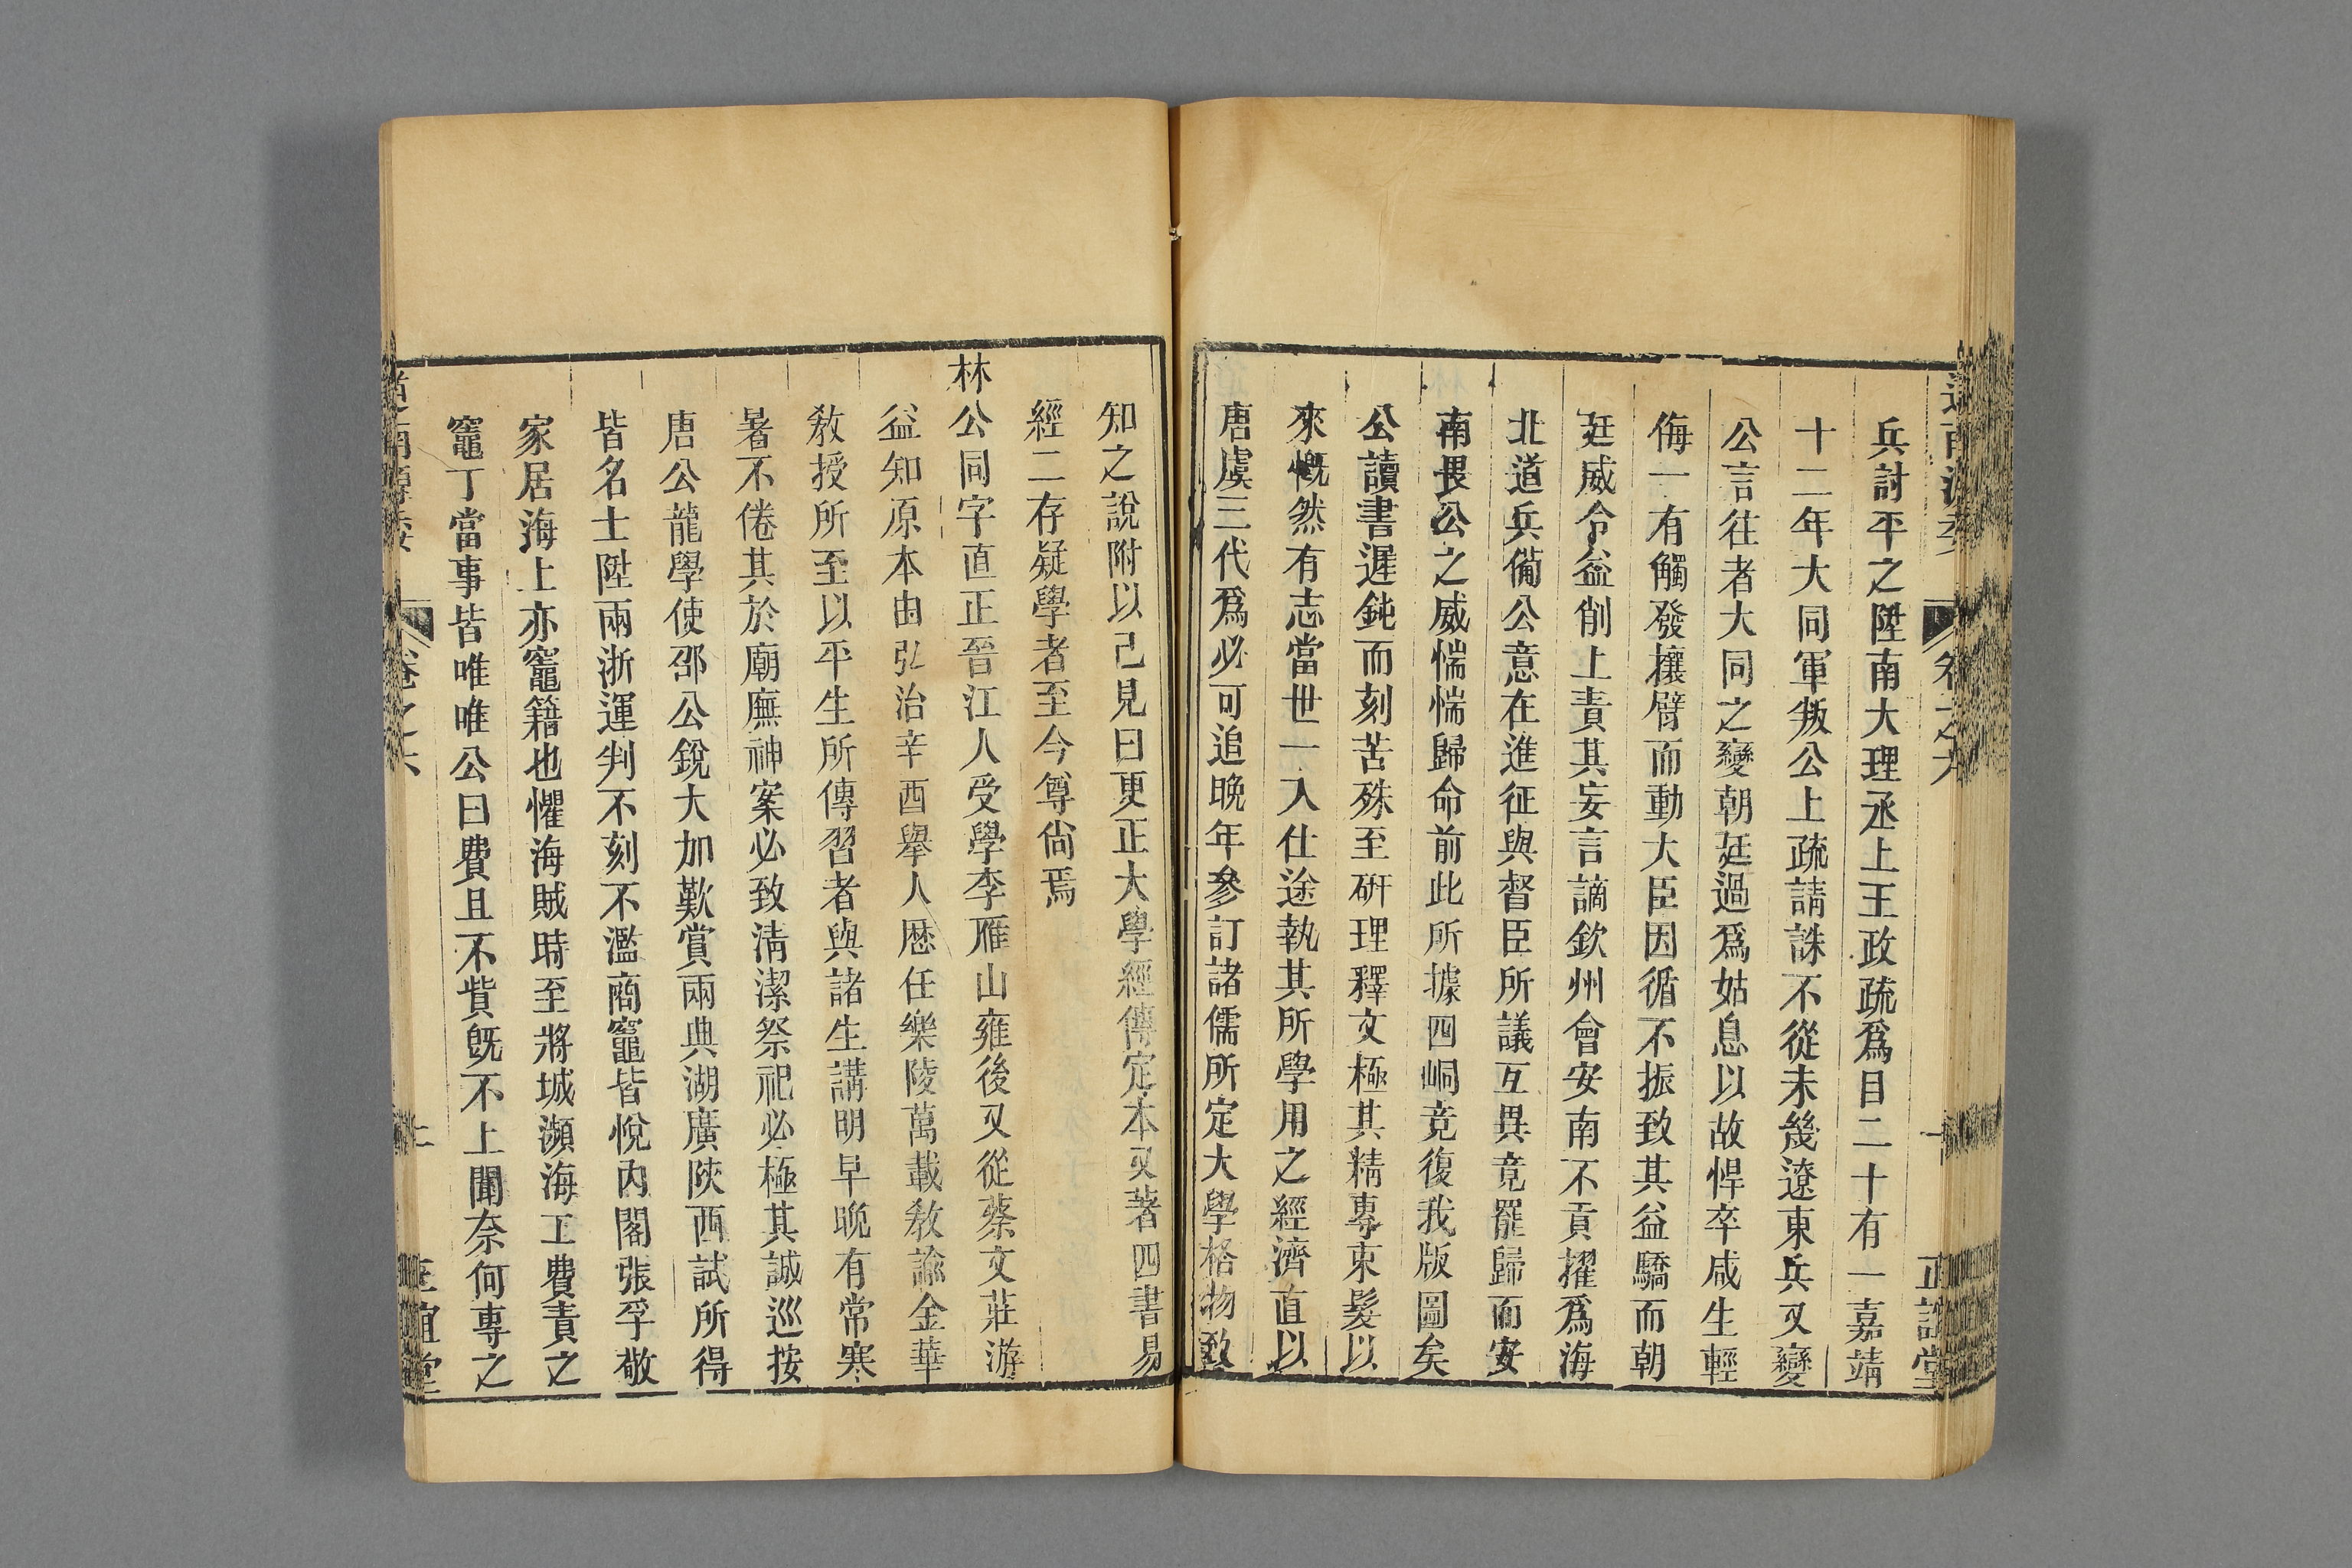 兵討平之陞南大理丞上王政疏爲目二十有一嘉靖
十二年大同軍叛公上疏請誅不從未幾遼東兵又變
公言往者大同之變朝廷過爲姑息以故悍卒咸生輕
侮一有觸發攘臂而動大臣因循不振致其益驕而朝
廷威令益削上責其妄言謫欽州會安南不貢擢爲海
北道兵備公意在進征與督臣所議互異竟罷歸而安
南畏公之威惴惴歸命前此所據四峒竟復我版圖矣
公讀書遲鈍而刻苦殊至硏理釋文極其精專束髮以
來慨然有志當世一入仕途執其所學用之經濟直以
唐虞三代爲必可追晩年參訂諸儒所定大學格物致
知之說附以己見曰更正大學經傳定本又著四書易
經二存疑學者至今尊尙焉
林公同字直正晉江人受學李雁山雍後又從蔡文莊游
益知原本由弘治辛酉舉人歷任樂陵萬載敎諭金華
敎授所至以平生所傳習者與諸生講明早晩有常寒
暑不倦其於廟廡神案必致淸潔祭祀必極其誠巡按
唐公龍學使邵公銳大加歎賞兩典湖廣陝西試所得
皆名士陞兩浙運判不刻不濫商竈皆悅內閣張孚敬
家居海上亦竈籍也懼海賊時至將城瀕海工費責之
竈丁當事皆唯唯公曰費且不貲旣不上聞奈何專之
卷之六